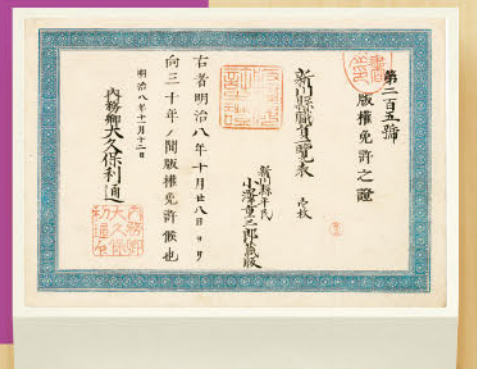 第二百五號
版權免許之證
新川縣職員一覽表 壱枚
新川縣平民
小澤重三郎蔵版
右者明治八年十月廿八日ヨリ
向三十年ノ間版權免許候也
明治八年十一月十二日
内務卿大久保利通
内務卿
大久保
利通印